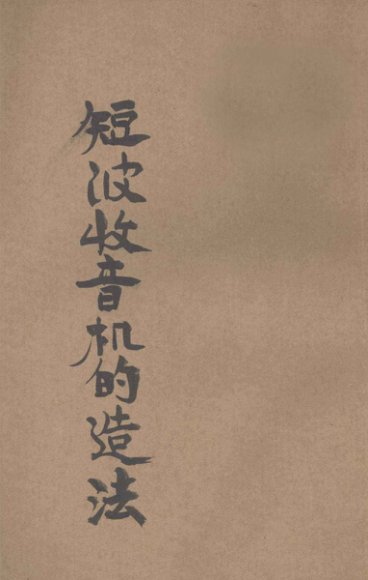 短波收音机的造法